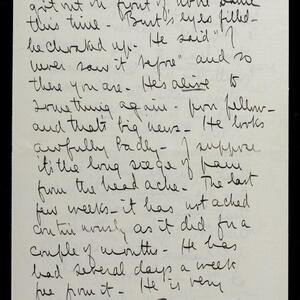 out in front of
this time - Burt's eyes filled -
he choaked up. He said "I
never saw it before" and so
there you are. He's alive to
something again - poor fellow -
and that's big news - He looks
awfully badly - I suppose
it's the long siege of pain
from the head ache. The last
few weeks - it has not ached
continuously as it did for a
couple of months - He has
had several days a week
free from it. He is very